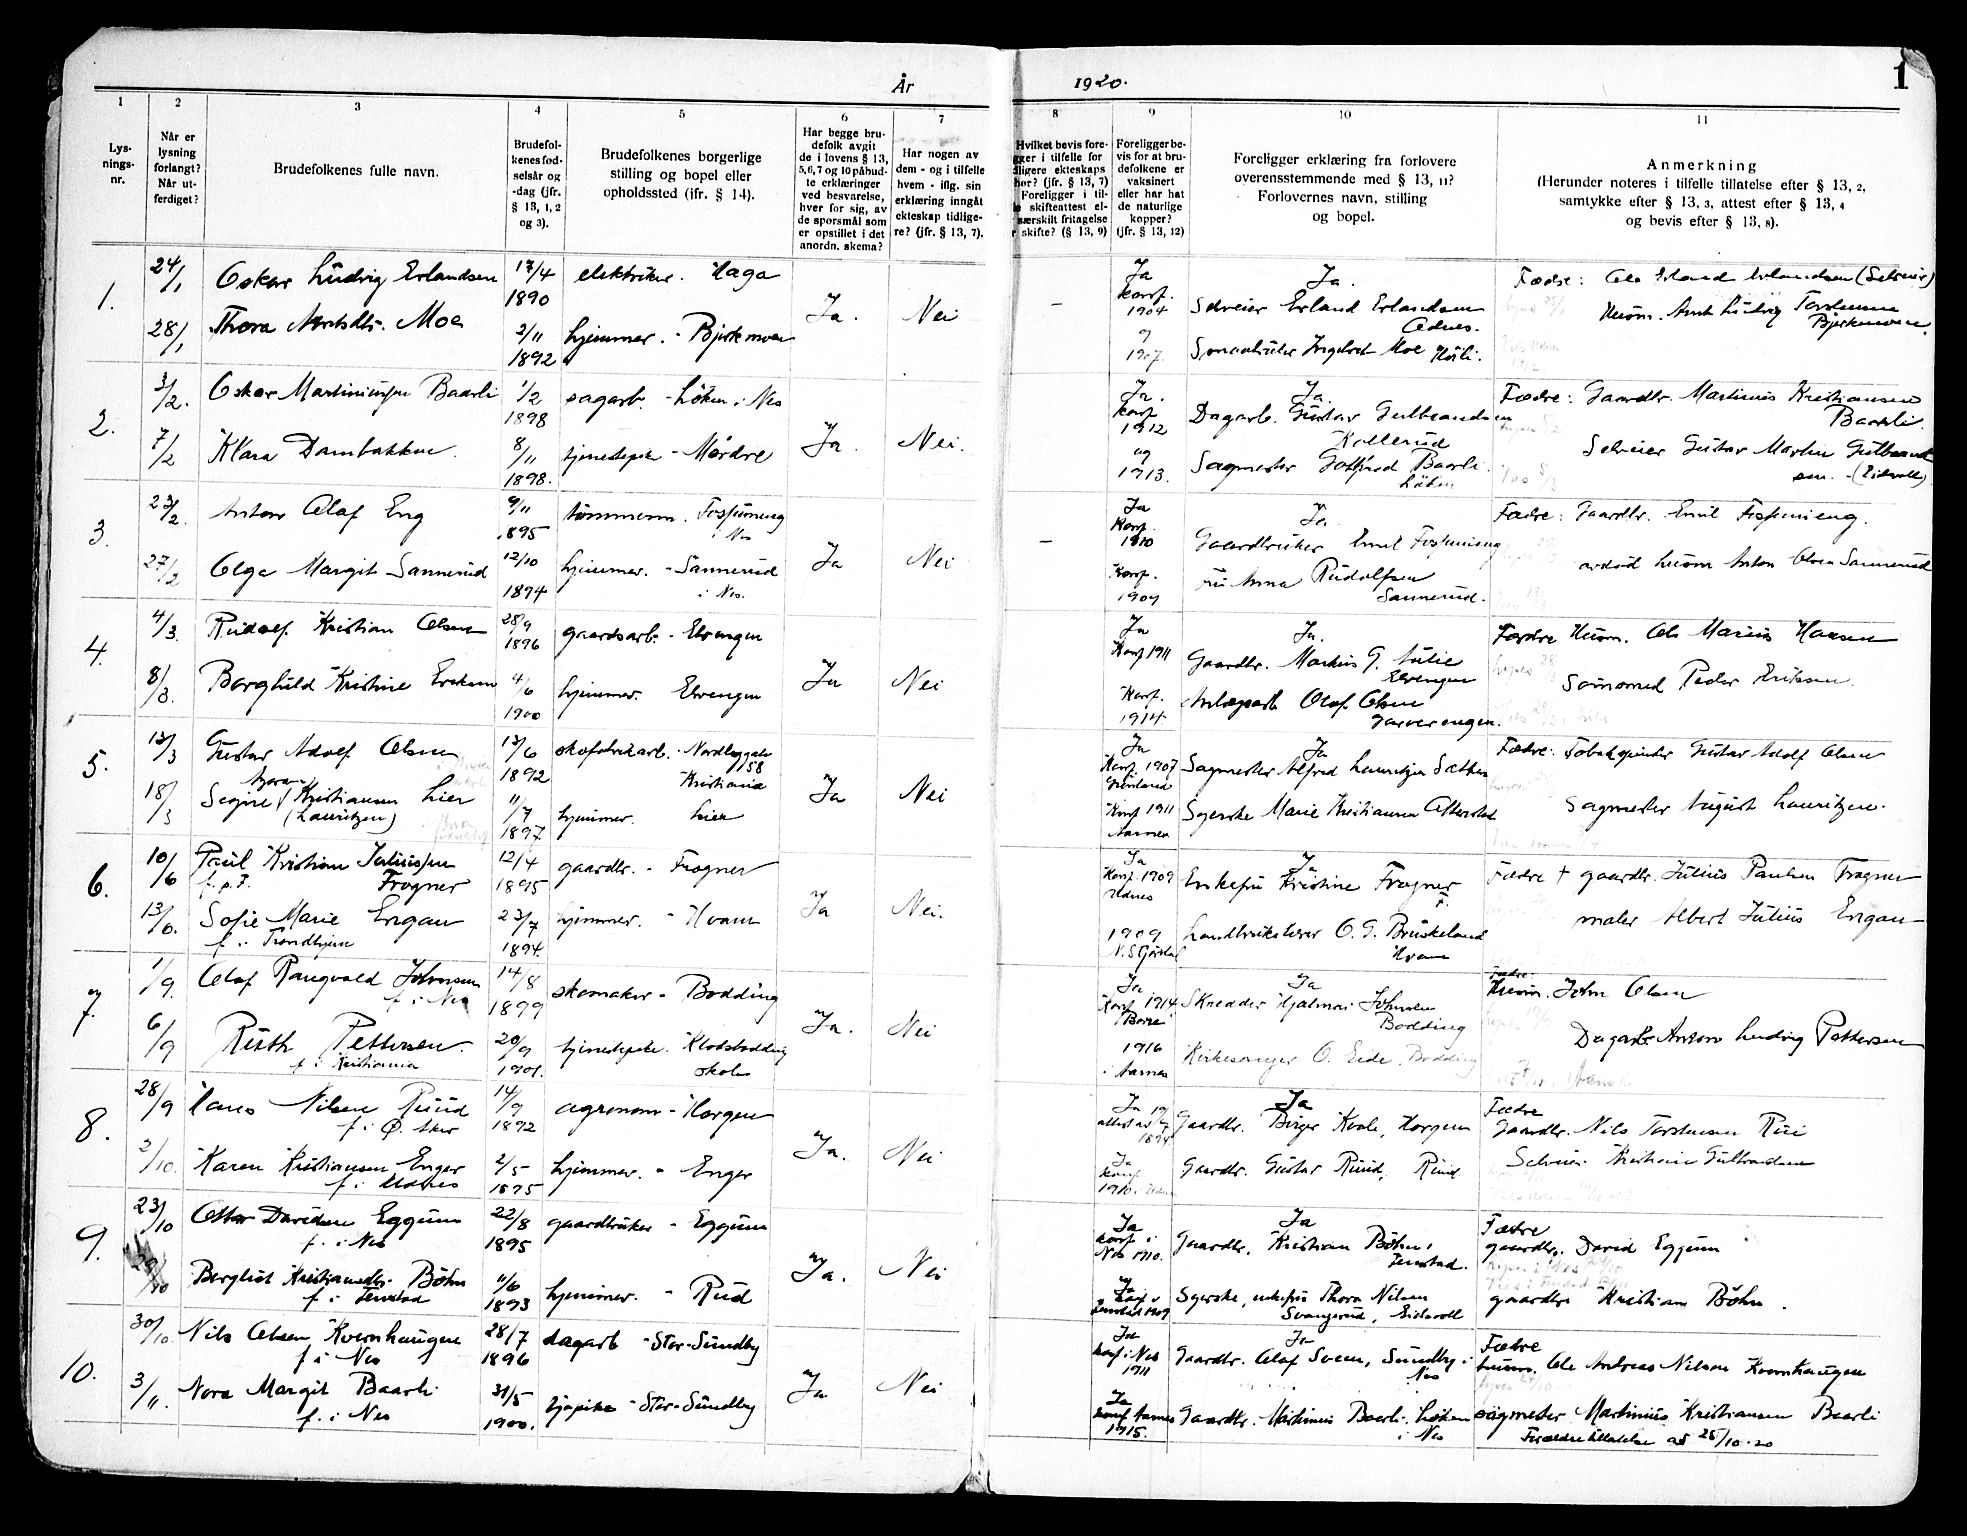 År 1920.
1
1 2 3 4 5 6 7 8 9 10 11
Lys-
nings-
nr.
Når er
lysning
forlangt?
Når ut-
ferdiget?
Brudefolkenes fulle navn.
Brudefol-
kenes fød-
selsår og
-dag (jfr.
§ 13, 1, 2
og 3).
Brudefolkenes borgerlige
stilling og bopel eller
opholdssted (ifr. § 14).
Har begge bru-
defolk avgit
de i lovens § 13,
5,6,7 og 10 påbud-
te erklæringer
ved besvarelse,
hver for sig, av
de spørsmål som
er opstillet i det
anordn. skema?
Har nogen av
dem - og i tilfelle
hvem - iflg. sin
erklæring inngått
ekteskap tidlige-
re? (jfr. § 13, 7).
Hvilket bevis fore-
gger i tilfelle for
dligere ekteskaps
hør? (jfr. § 13, 7)
Foreligger i til-
le skifteattest el-
særskilt fritagelse
r skifte? (§ 13, 9)
Foreligger be-
vis for at bru-
defolkene er
vaksinert
eller har hat
de naturlige
kopper?
(jfr. § 13, 12)
Foreligger erklæring fra forlovere
overensstemmende med § 13, 11?
Forlovernes navn, stilling
og bopel.
Anmerkning
(Herunder noteres i tilfelle tillatelse efter § 13, 2,
samtykke efter § 13, 3, attest efter § 13, 4
og bevis efter § 13, 8).
1. 24/1 Oskar Ludvig Erlandsen 17/4 1890 elektriker. Haga Ja. Nei –
28/1 Thora Moe 2/11 1892 hjemmev. - Bjerkmoen
Ja konf. 1904 og 1907.
Ja.
Selveier Erland Erlandsen
Moe
Fædre: Ole Erland Erlandsen (Selveier)
Husm. Ludvig Torstensen
2. 3/2. Oskar Baarli 1/2 1898 sagarb. - Løken i Nes Ja. Nei.
7/2 Klara Dambakken. 8/11 1898. tjenestepike - Mørdre
Ja. konf 1912 og 1913.
Ja.
Dagarb. Gustav Gulbrandsen
Kollerud
Sagmester Gotfred Baarli.
Løken
Fædre: Gaardbr. Martinus Kristiansen
Baarli.
Selveier Gustav Martin Gulbrand
sen. - (Eidsvoll)
3. 23/2. Anton Olaf Eng 9/11 1895 tømmerm. i Nes Ja Nei –
27/2 Olga Margit Sannerud 12/10 1894 hjemmev. - Sannerud
i Nes.
Ja Konf. 1910 Konf. 1909
Ja.
Gaardbruker Emil
Fru Anna Rudolfsen
Sannerud.
Fædre: Gaardbr. Emil
avdød husm Anton Olsen Sannerud
4. 4/3. Rudolf Kristian Olsen 28/9 1896 gaardsarb. - Elvengen Ja Nei
8/3. Borghild Kristine Eriksen 4/6 1900 hjemmev. Elvengen
Ja Konf 1911 Konf. 1914.
Ja.
Gaardbr. Markus G. Julie
Elvengen
Anlægsarb Olaf Olsen
Fædre Husm. Ole Marius Hansen
Peder Eriksen.
5. 13/3 Gustav Adolf Olsen 13/6 1892 skofabrikarb. - Nordbygata
58
Kristiania Ja Nei
18/3 Signe Kristiansen Lier
(Lauritzen) 11/7 1897. hjemmev. Lier
Ja Konf. 1907 Grønland
Konf 1911 Aarnes
Ja
Sagmester Alfred Lauritzen Sæther
Syerske Marie Kristiansen
Fædre: Gustav Adolf Olsen
Sagmester August Lauritzen.
6. 10/6 Paul Kristian Juliussen
Frogner 12/4 1895 gaardbr. - Frogner Ja Nei.
13/6. Sofie Marie Engan
f. i Trondhjem 23/7 1894. hjemmev. - Hvam
Ja Konf. 1909 Udnes
1909
Ja
Enkefru Kristine Frogner
Landbrukslærer O. G. Bruskeland
Hvam
Fædre † gaardbr. Julius Paulsen Frogner
maler Albert Julius Engan
7. 1/9. Olaf Rangvald Johnsen
f. i Nes 14/8 1899 skomaker - Bodding Ja. Nei
6/9 Ruth Pettersen.
f. i Kristiania 20/9 1901. tjenestepike. Klodsbodding
skole
Ja Konf. 1914
1916
i Aarnes
Ja
Skredder Hjalmar Johnsen
Bodding
Kirkesanger O. Eide, Bodding
Fædre.
Husm. John Olsen
Dagarb. Anton Ludvig Pettersen
8. 28/9 Hans Nilsen Ruud
f. i Ø. Aker 14/9 1892 agronom - Horgen Ja. Nei
2/10. Karen Kristiansen Enger
f. i Udnes 2/5 1895 hjemmev. - Enger
Ja
1894
Ja konf 1910.
Ja
Gaardbr. Birger Kvale, Horgen
Gaardbr. Gustav Ruud, Ruud
Fædre
Gaardbr. Nils Torstensen Ruu
Selveier Kristian Gulbrandsen
9. 23/10 Ottar Davidsen Eggum
f. i Nes 22/8 1895 gaardbruker - Eggum Ja. Nei
Bergliot Kristiansdtr. Böhn
f. i 11/6 1893 hjemmev. - Rud
Ja konf i Nes 1910.
Ja konf i 1909
Ja
Gaardbr. Kristian Böhn,
Syerske, enkefru Thora Nilsen
Svangerud, Eidsvoll
Fædre
gaardbr. David Eggum
gaardbr. Kristian Böhn.
10. 30/10 Nils Olsen Kvernhaugen
f i Nes 28/7 1896 dagarb - Stor-Sundby Ja Nei
3/11. Nora Margit Baarli
f. i Nes 31/5 1900. tj.pike - Stor-Sundby
Ja konf i Nes 1911
Ja konf Aarnes 1915.
Ja
Gaardbr. Olaf Sveen, Sundby i
Nes
Gaardbr. Martinius Baarli, Løken
i Nes
Fædre
husm. Ole Andreas Nilsen Kvernhaugen
sagmester Martinius Kristiansen Baarli
Forældretillatelse av 25/10-20